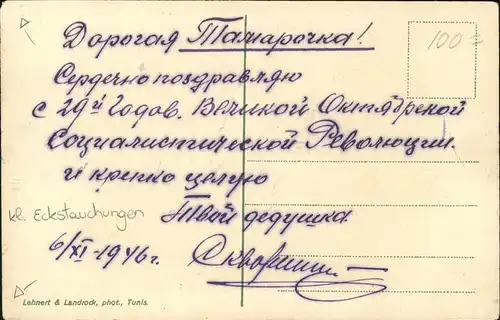 Дорогая Тамарочка!
100=
Сердечно поздравляю
с 29й Годов. Великой Октябрской
Социалистической Революции.
и крепко целую
kl. Eckstauchungen
Твой дедушка
6/XI-1946г.
Lehnert & Landrock, phot., Tunis.